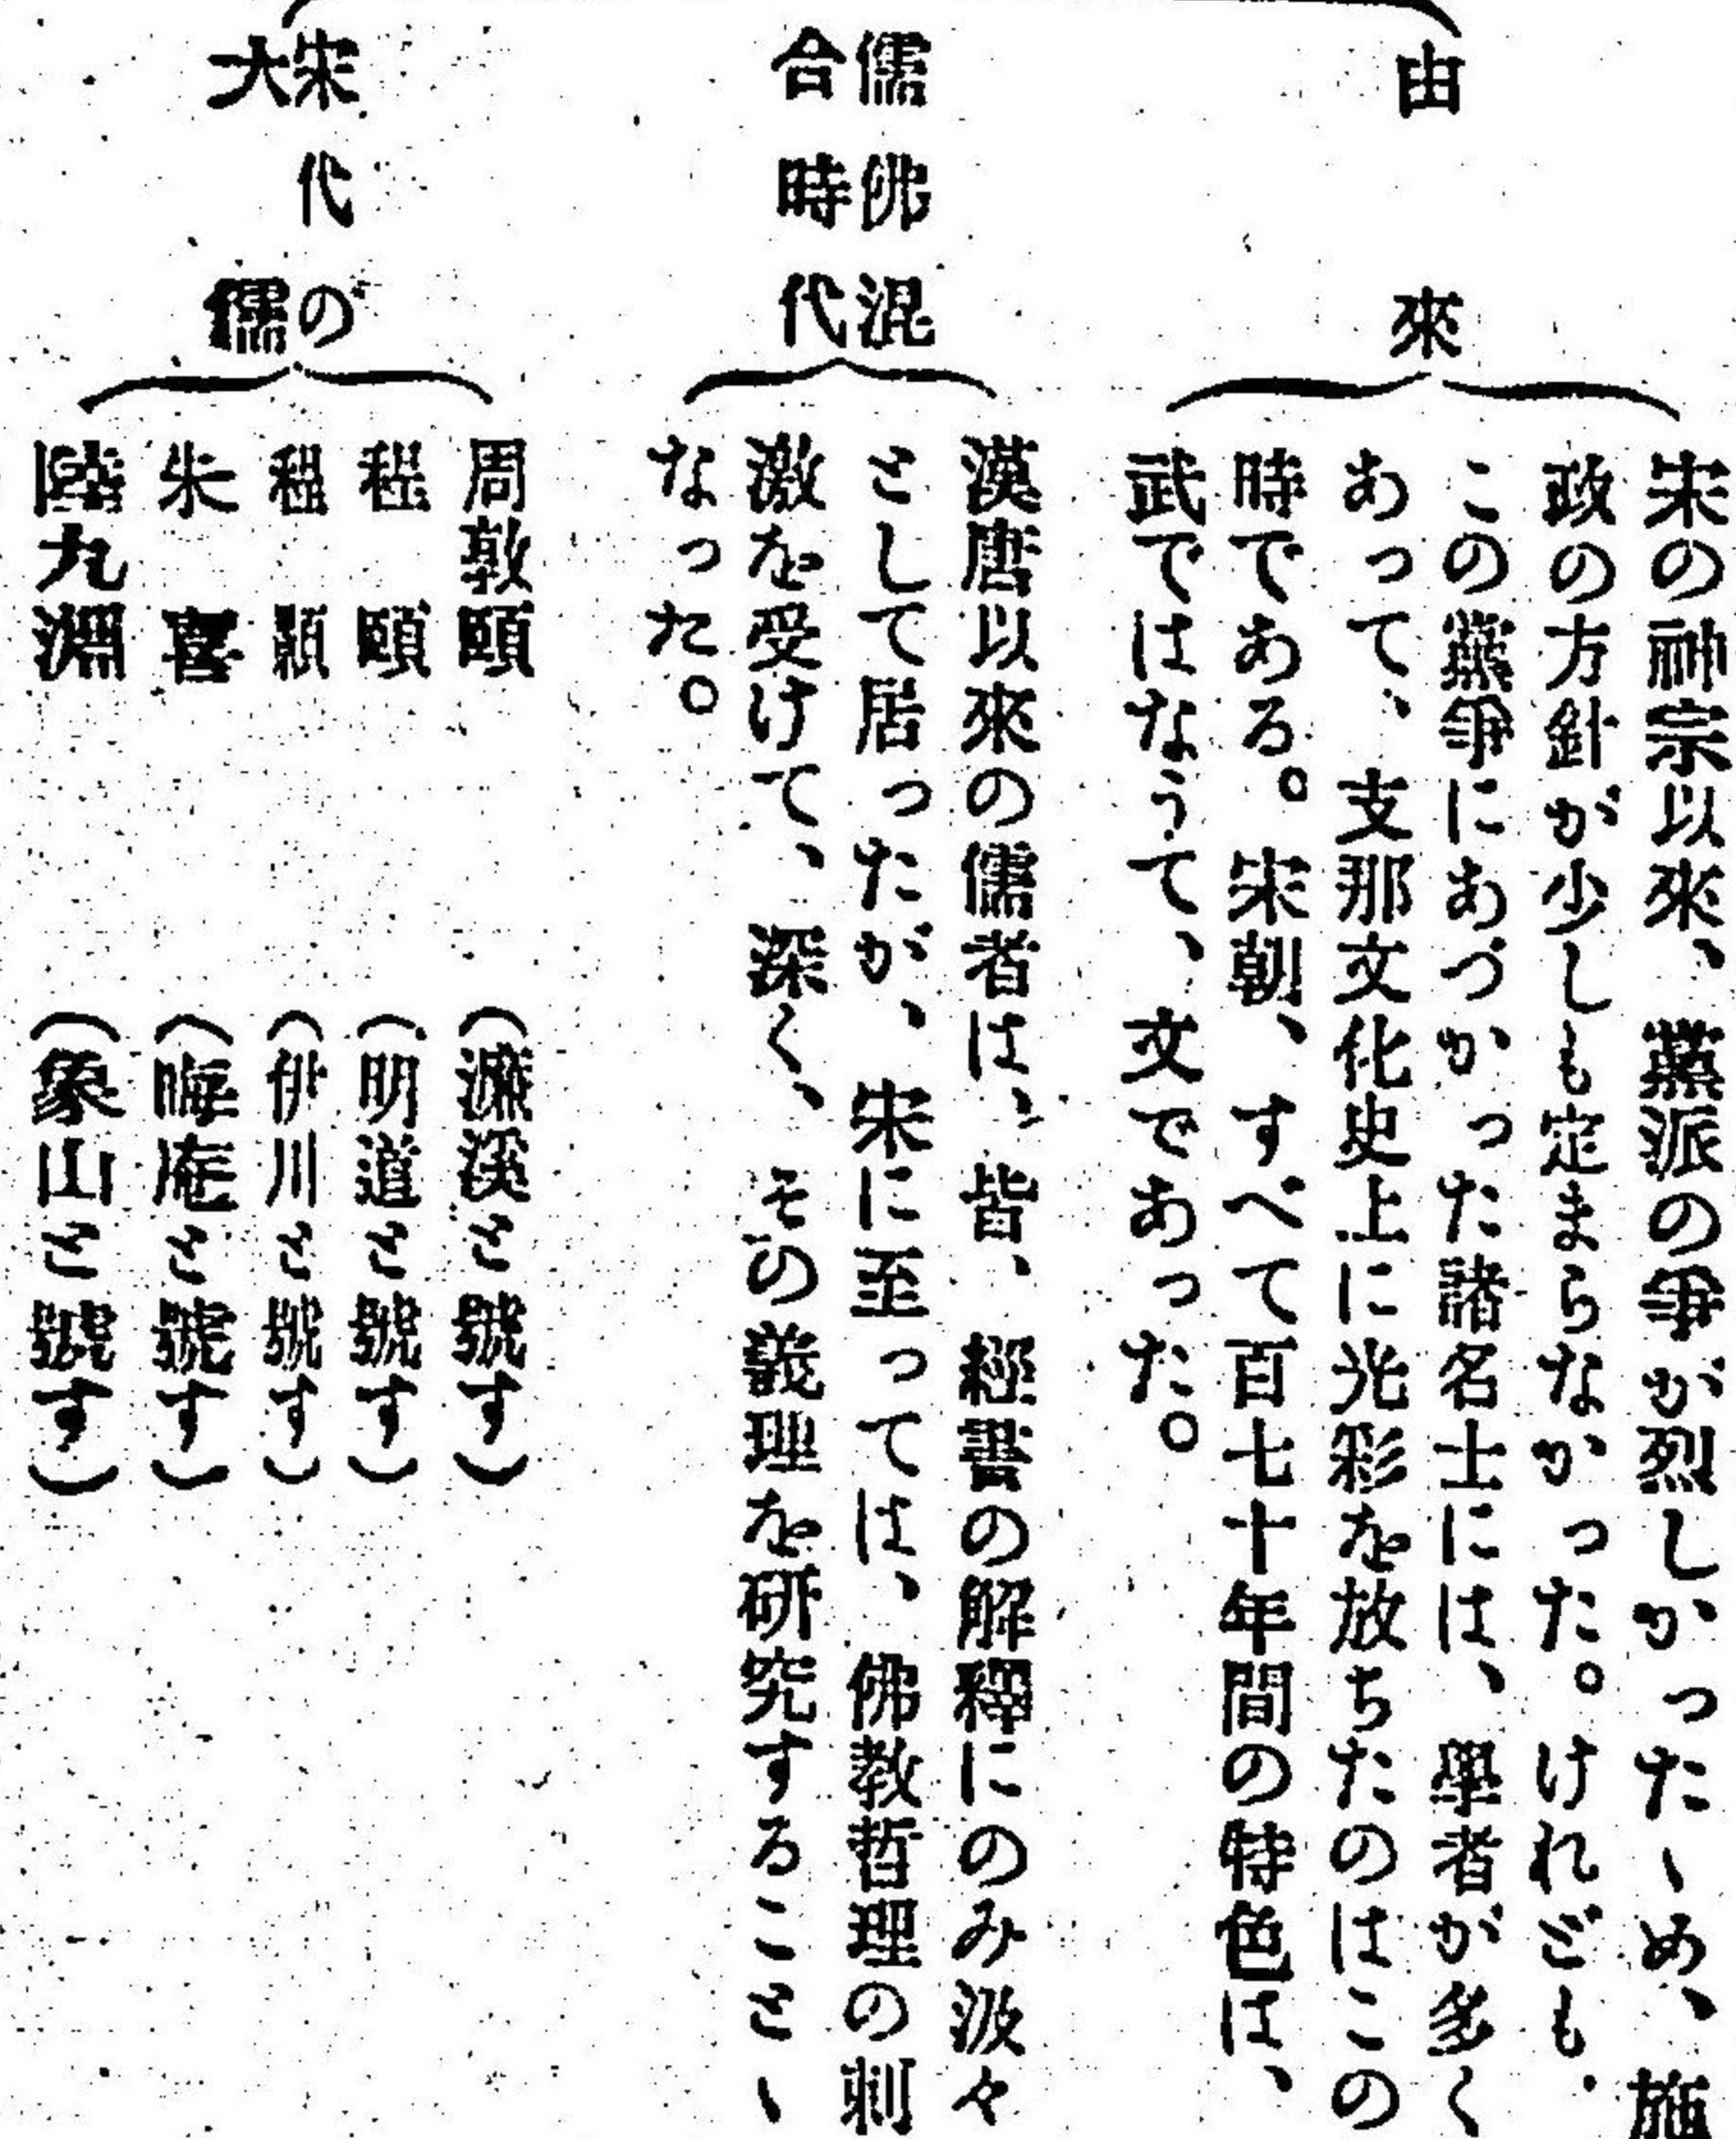 由來
宋の神宗以來、黨派の爭が烈しかったゝめ、施
政の方針が少しも定まらなかった。けれども、
この黨爭にあづかった諸名士には、學者が多く
あって、支那文化史上に光彩を放ちたのはこの
時である。宋朝、すべて百七十年間の特色は、
武ではなうて、文であった。
儒佛混
合時代
漢唐以來の儒者は、皆、經書の解釋にのみ汲々
として居ったが、宋に至っては、佛教哲理の刺
激を受けて、深く、その義理を硏究することゝ
なった。
宋代の
大儒
周敦頤 (濂溪と號す)
程頤 (明道と號す)
程顥 (伊川と號す)
朱熹 (晦庵と號す)
陸九淵 (象山と號す)